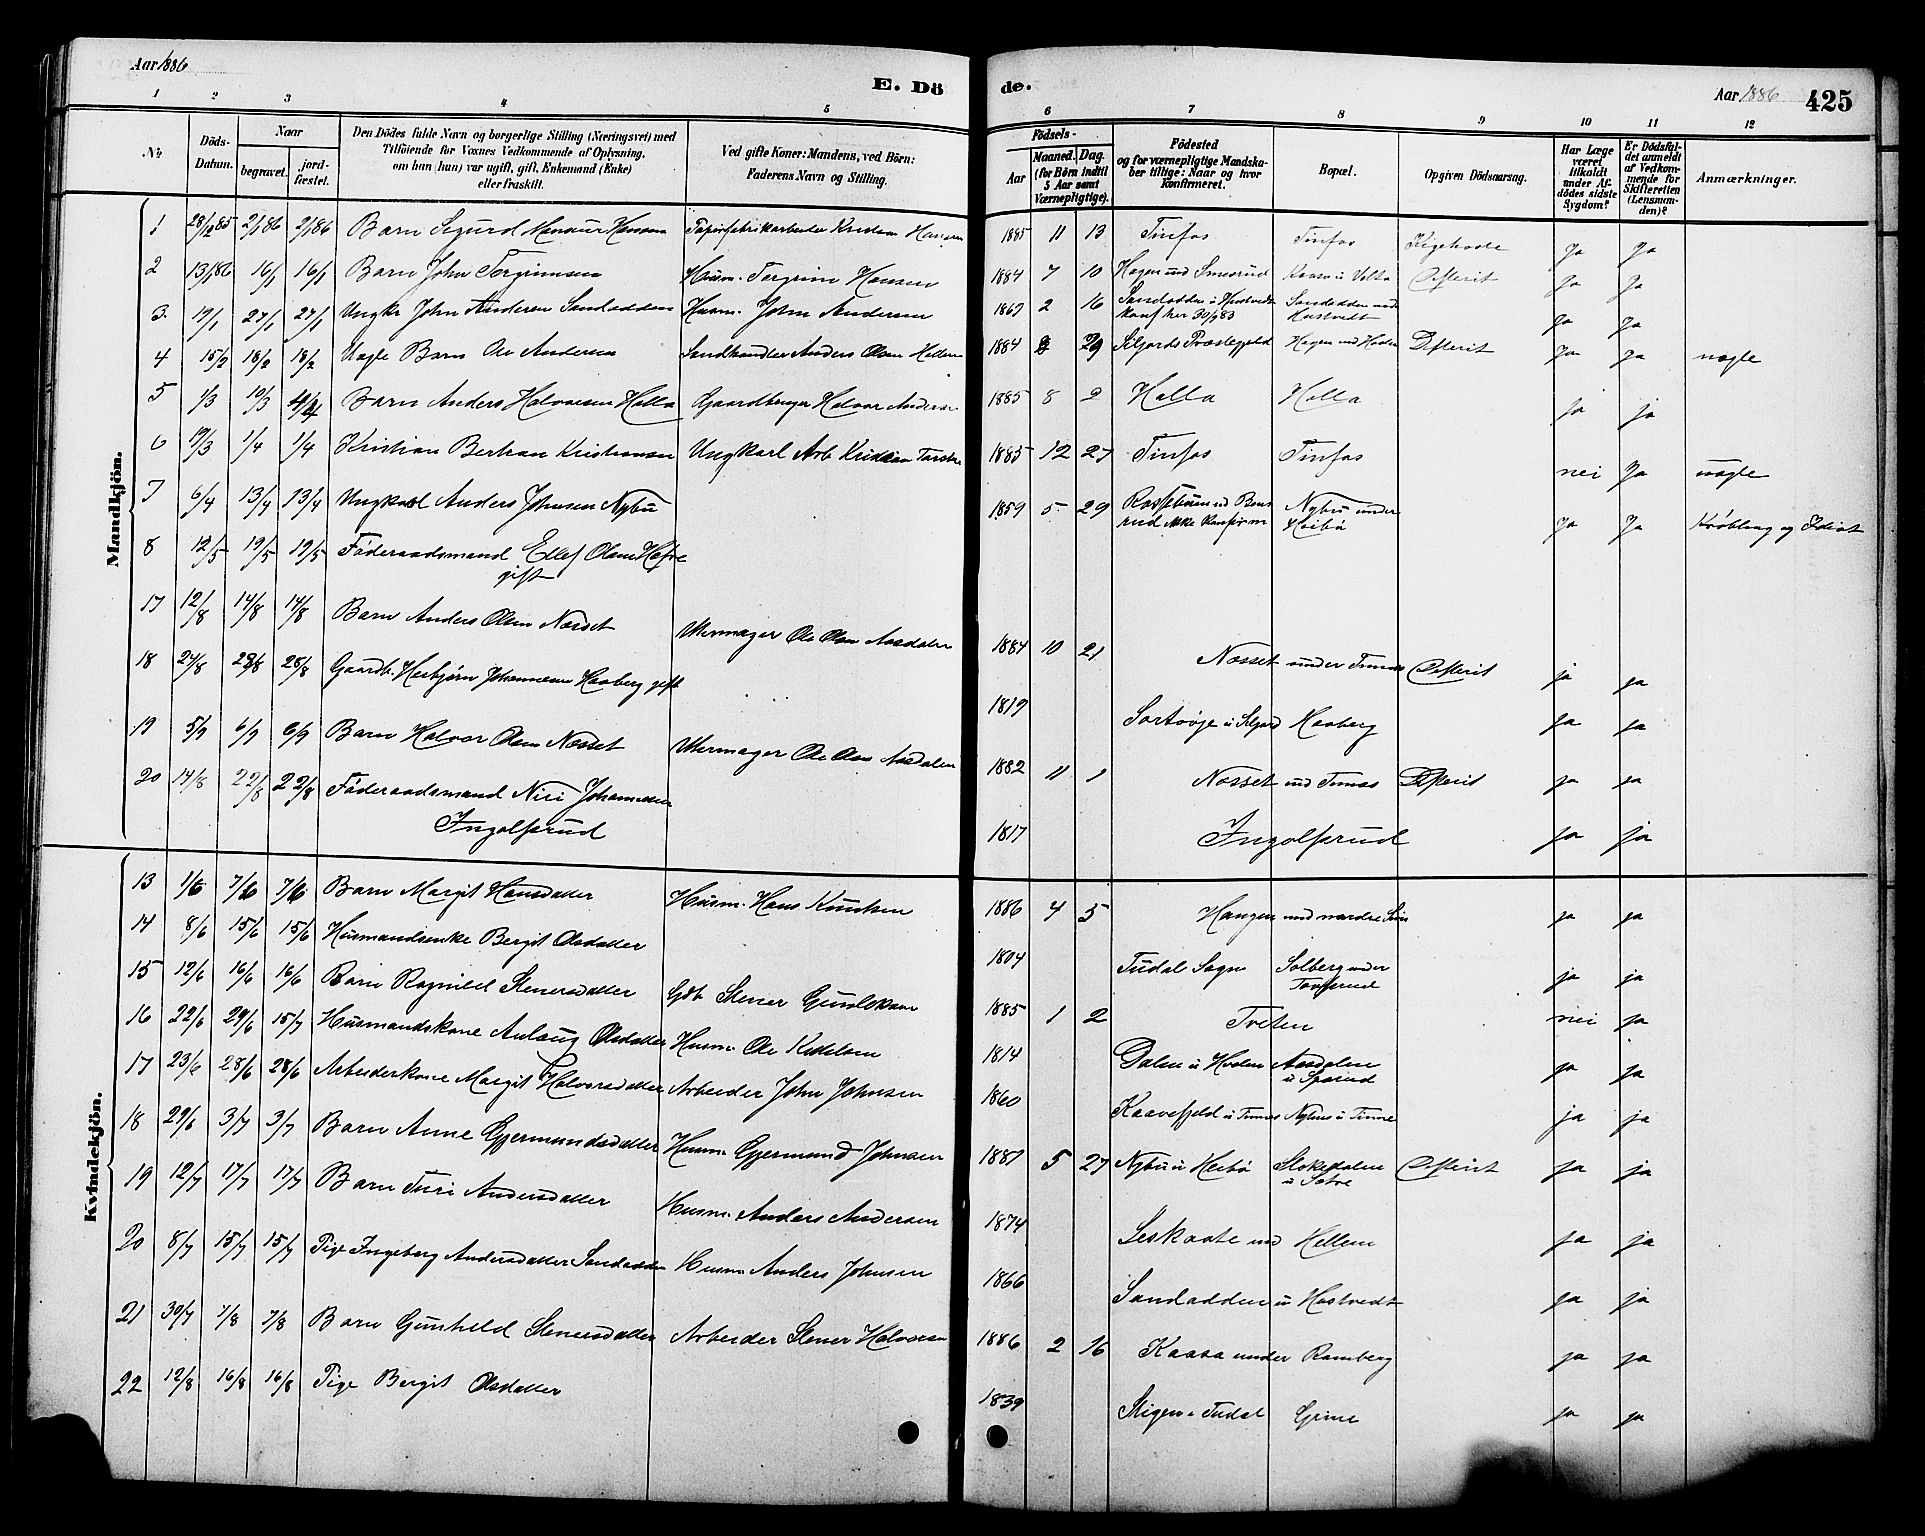 Aar 1886
E. Dö
de.
Aar 1886
425
1 2 3 4 5 6 7 8 9 10 11 12
No.
Döds-Datum.
Naar
begravet.
jord-fæstet.
Den Dödes fulde Navn og borgerlige Stilling (Næringsvei) med
Tilföiende for Voxnes Vedkommende af Oplysning,
om han (hun) var ugift, gift, Enkemand (Enke)
eller fraskilt.
Ved gifte Koner: Mandens, ved Börn:
Faderens Navn og Stilling.
Födsels-
Aar
Maaned.
Dag.
(for Börn indtil
5 Aar samt
Værnepligtige).
Födested
og for værnepligtige Mandska-
ber tillige: Naar og hvor
konfirmeret.
Bopæl.
Opgiven Dödsaarsag.
Har Læge
været
tilkaldt
under Af-
dödes sidste
Sygdom?
Er Dödsfal-
det anmeldt
af Vedkom-
mende for
Skifteretten
(Lensman-
den)?
Anmærkninger.
Mandkjön.
1 28/12 85 2/1 86 2/1 86 Barn Sigurd Hansen 1885 11 13 Tinfos Tinfos Kighoste Ja Ja
2 13/1 86 16/1 16/1 Barn John Torgrimsen Husm. Torgrim Hansen 1884 7 10 Hagen und Smesrud Ja Ja
3. 19/1 27/1 27/1 Ungkr John Andersen Sandadden Husm. John Andersen 1869 2 16 Sandadden u Hustvedt Sandadden und Hustvedt ja ja
4 15/2 18/2 18/2 Uægte Barn Ole Andersen Anders Olsen 1884 29 Siljords Præstegjeld Hagen und Difterit Ja ja uægte
5 1/3 10/3 4/4 Barn Anders Halvorsen Holla Gaardbruger Halvor Andersen 1885 8 2 Holla Holla ja ja
6 19/3 1/4 1/4 Kristian Bertran Kristiansen Ungkarl Arb Kristian 1885 12 27 Tinfos Tinfos nei Ja uægte
7 6/4 13/4 13/4 Ungkarl Anders Johnsen Nybu 1859 5 29 ikke konfirm Nybu under Heibø Ja Ja Krøbling og Idiot
8 12/5 19/5 19/5 Föderaadsmand Ellef Olsen
gift
17 12/8 14/8 14/8 Barn Anders Olsen Næsset Uhrmager Ole Olsen Aasdalen 1884 10 21 Næsset under Tinnes Difterit ja ja
18 24/8 28/8 28/8 Gaardb. Herbjørn Johannesen Haaberg gift 1819 Siljord Haaberg ja ja
19 5/9 6/9 6/9 Barn Halvor Olsen Næsset Uhrmager Ole Olsen Aasdalen 1882 11 1 Næsset und Tinnes Difterit ja ja
20 14/8 22/8 22/8 Föderaadsmand Nils Johannesen
Ingolfsrud 1817 Ingolfsrud ja ja
Kvindekjön.
13 1/6 7/6 7/6 Barn Margit Hansdatter Husm. Hans Knutsen 1886 4 5 Haugen und nordre ja ja
14 8/6 15/6 15/6 Husmandsenke Bergit Olsdatter 1804 Tudal Sogn Solberg under ja ja
15 12/6 16/6 16/6 Barn Ragnild Stenersdatter Gdb Stener Gunleksen 1885 1 2 Tveten nei ja
16 22/6 29/6 15/7 Husmandskone Anlaug Olsdatter Husm. Ole Kittilsen 1814 Dalen u Aasdalen ja ja
17 23/6 28/6 28/6 Arbeiderkone Margit Halvorsdatter Arbeider John Johnsen 1860 Kaavefjeld u Tinnes Nybu u Tinne ja ja
18 29/6 3/7 3/7 Barn Anne Gjermundsdatter Husm. Gjermund Johnsen 1881 5 27 Nybu u Heibø Stokedalen Difterit ja ja
19 12/7 17/7 17/7 Barn Turi Andersdatter Husm. Anders Andersen 1874 Leskaate und Hellem ja ja
20 8/7 15/7 15/7 Pige Ingeborg Andersdatter Sandadden Husm Anders Johnsen 1866 Sandadden u Hustvedt ja ja
21 30/7 7/8 7/8 Barn Gunhild Stenersdatter Arbeider Stener Halvorsen 1886 2 16 Kaasa under Ramberg ja ja
22 12/8 16/8 16/8 Pige Bergit Olsdatter 1839 Stigen u Tudal Grine ja ja